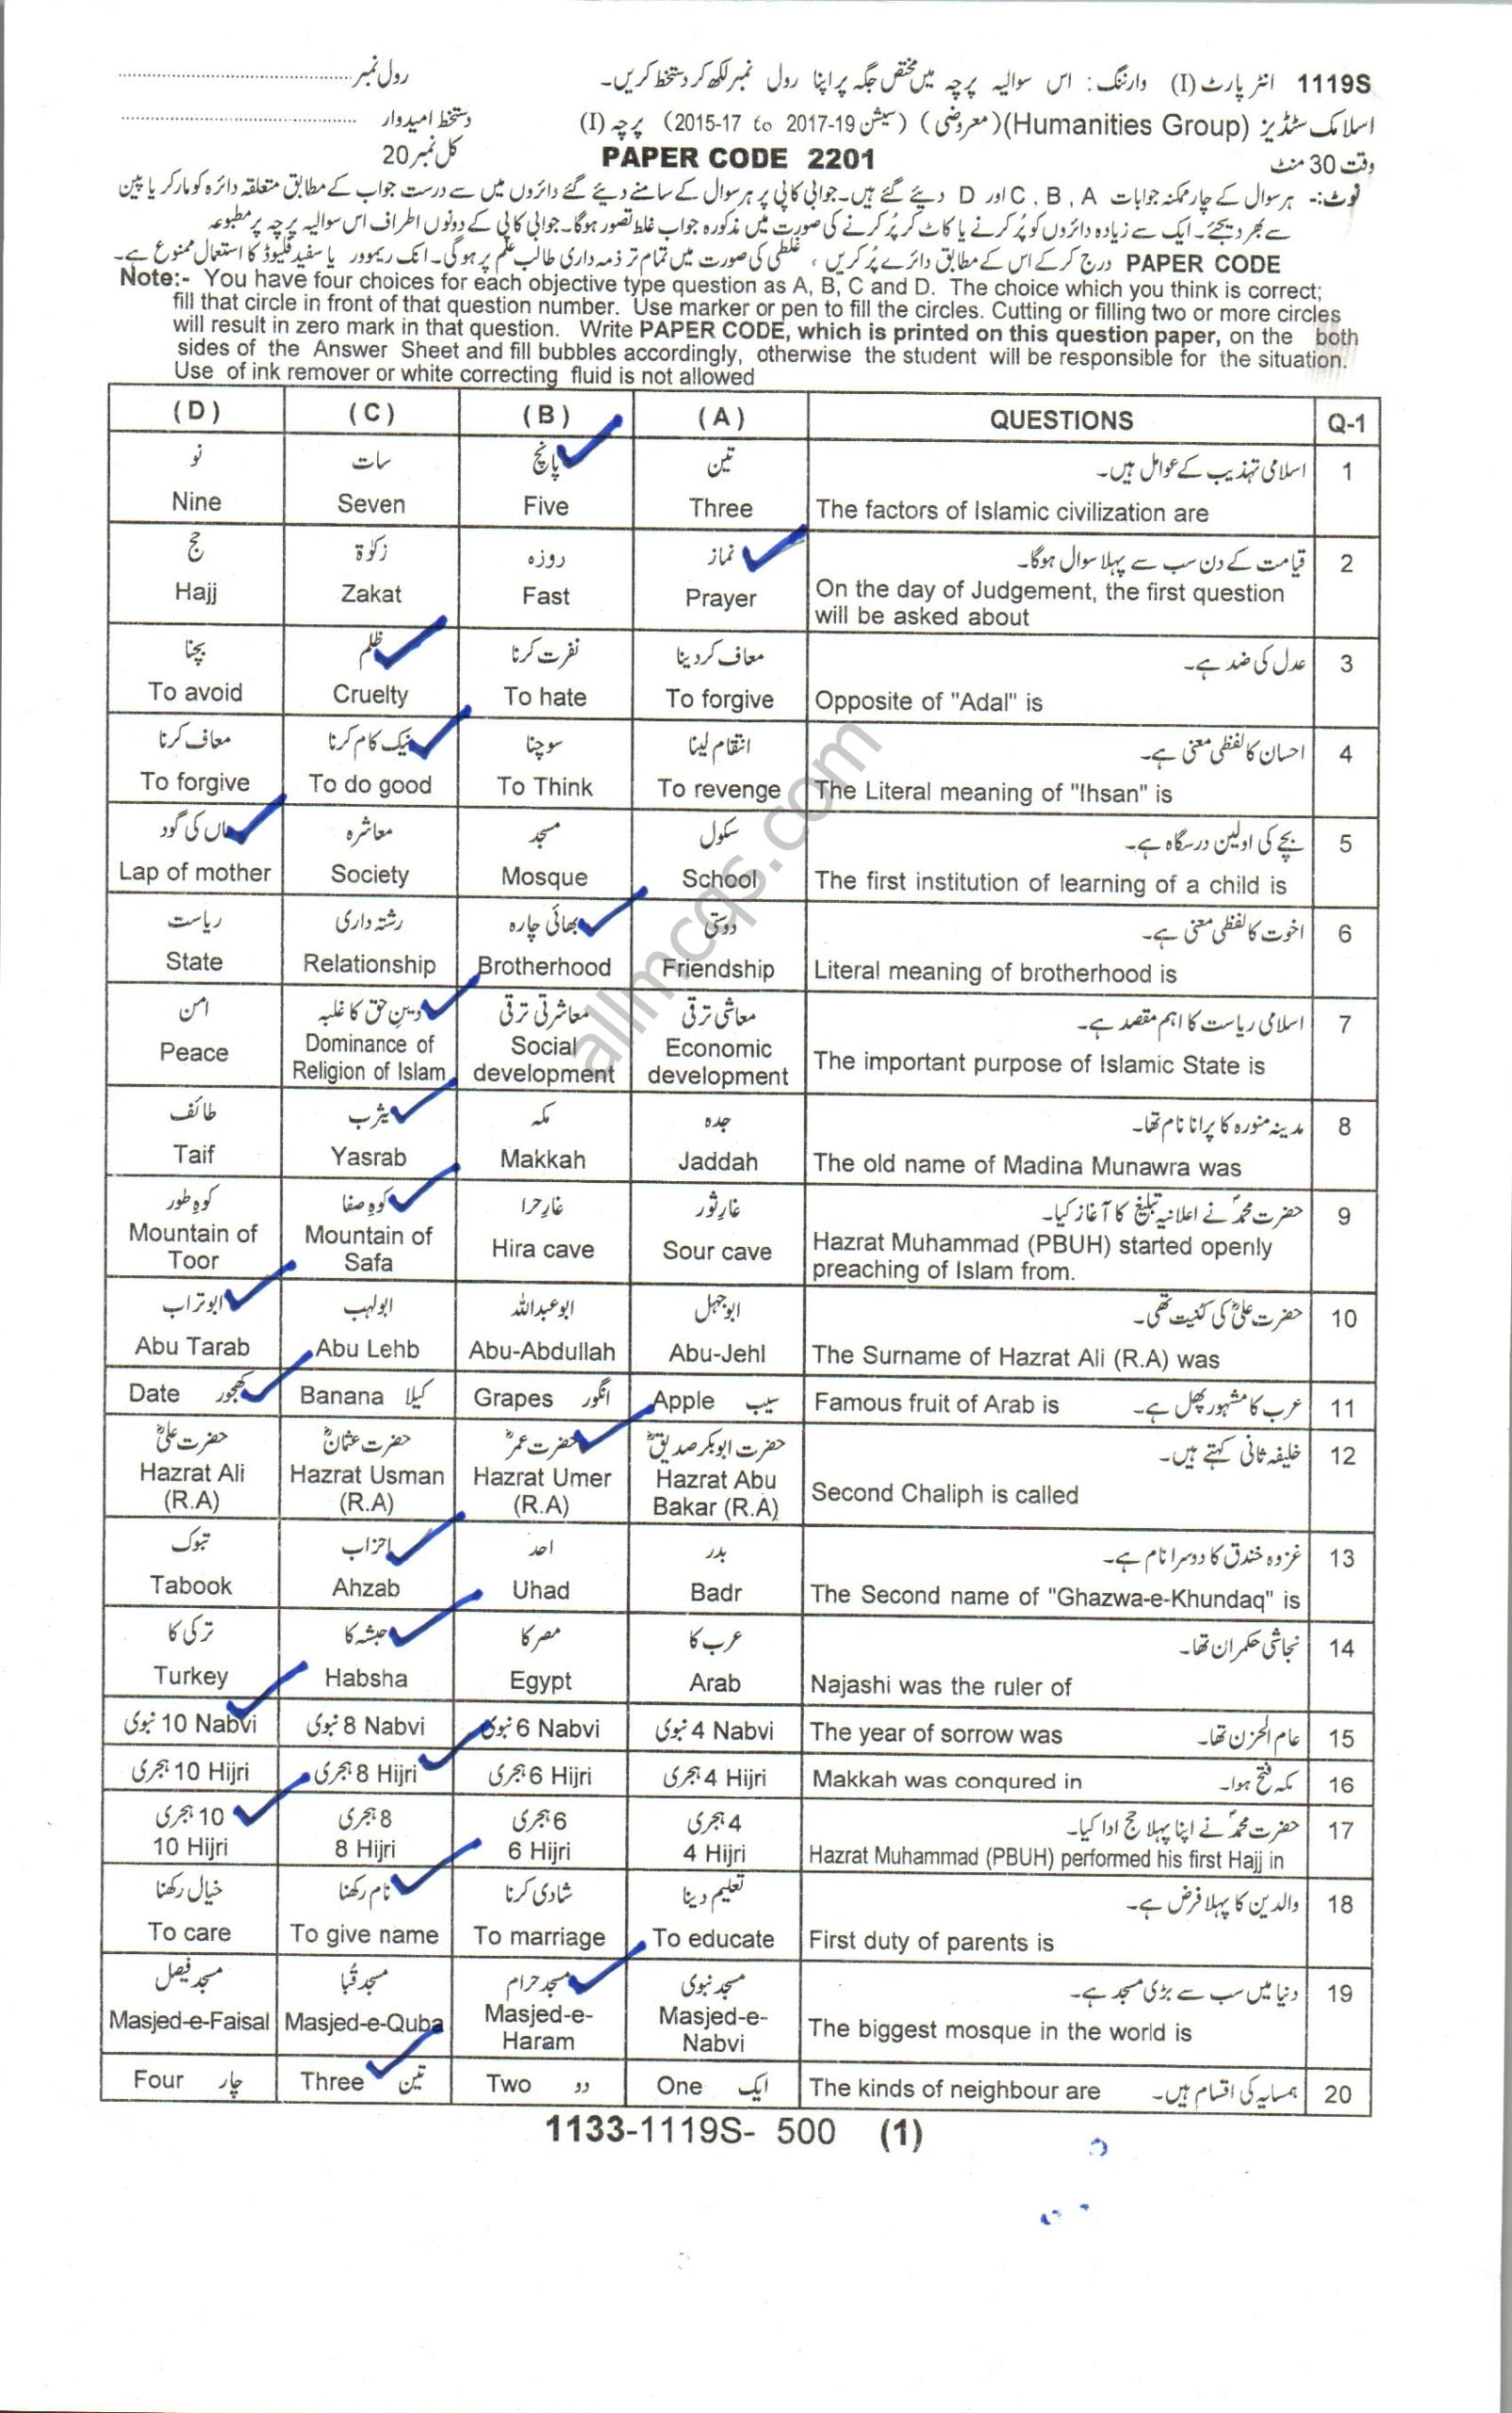 1119S انٹر پارٹ (I) وارننگ: اس سوالیہ پرچہ میں مختص جگہ پر اپنا رول نمبر لکھ کر دستخط کریں۔ رول نمبر
اسلامک سٹڈیز (Humanities Group) (معروضی) (سیشن 2015-17 to 2017-19) پرچہ (I) دستخط امیدوار
وقت 30 منٹ PAPER CODE 2201 کل نمبر 20
نوٹ:- ہر سوال کے چار ممکنہ جوابات C , B , A اور D دیئے گئے ہیں۔ جوابی کاپی پر ہر سوال کے سامنے دیئے گئے دائروں میں سے درست جواب کے مطابق متعلقہ دائرہ کو مارکر یا پین
سے بھر دیجئے۔ ایک سے زیادہ دائروں کو پُر کرنے یا کاٹ کر پُر کرنے کی صورت میں مذکورہ جواب غلط تصور ہوگا۔ جوابی کاپی کے دونوں اطراف اس سوالیہ پرچہ پر مطبوعہ
PAPER CODE درج کر کے اس کے مطابق دائرے پُر کریں ، غلطی کی صورت میں تمام تر ذمہ داری طالب علم پر ہوگی۔ انک ریموور یا سفید فلیوڈ کا استعمال ممنوع ہے۔
Note:- You have four choices for each objective type question as A, B, C and D. The choice which you think is correct;
fill that circle in front of that question number. Use marker or pen to fill the circles. Cutting or filling two or more circles
will result in zero mark in that question. Write PAPER CODE, which is printed on this question paper, on the both
sides of the Answer Sheet and fill bubbles accordingly, otherwise the student will be responsible for the situation.
Use of ink remover or white correcting fluid is not allowed
(D) (C) (B) (A) QUESTIONS Q-1
نو سات پانچ تین اسلامی تہذیب کے عوامل ہیں۔ 1
Nine Seven Five Three The factors of Islamic civilization are
حج زکوٰۃ روزہ نماز قیامت کے دن سب سے پہلا سوال ہوگا۔ 2
Hajj Zakat Fast Prayer On the day of Judgement, the first question
will be asked about
بچنا ظلم نفرت کرنا معاف کر دینا عدل کی ضد ہے۔ 3
To avoid Cruelty To hate To forgive Opposite of "Adal" is
معاف کرنا نیک کام کرنا سوچنا انتقام لینا احسان کا لفظی معنی ہے۔ 4
To forgive To do good To Think To revenge The Literal meaning of "Ihsan" is
ماں کی گود معاشرہ مسجد سکول بچے کی اولین درسگاہ ہے۔ 5
Lap of mother Society Mosque School The first institution of learning of a child is
ریاست رشتہ داری بھائی چارہ دوستی اخوت کا لفظی معنی ہے۔ 6
State Relationship Brotherhood Friendship Literal meaning of brotherhood is
امن دینِ حق کا غلبہ معاشرتی ترقی معاشی ترقی اسلامی ریاست کا اہم مقصد ہے۔ 7
Peace Dominance of Religion of Islam Social development Economic development The important purpose of Islamic State is
طائف یثرب مکہ جدہ مدینہ منورہ کا پرانا نام تھا۔ 8
Taif Yasrab Makkah Jaddah The old name of Madina Munawra was
کوہِ طور کوہِ صفا غارِ حرا غارِ ثور حضرت محمدؐ نے اعلانیہ تبلیغ کا آغاز کیا۔ 9
Mountain of Toor Mountain of Safa Hira cave Sour cave Hazrat Muhammad (PBUH) started openly
preaching of Islam from.
ابو تراب ابو لہب ابو عبداللہ ابو جہل حضرت علیؓ کی کنیت تھی۔ 10
Abu Tarab Abu Lehb Abu-Abdullah Abu-Jehl The Surname of Hazrat Ali (R.A) was
Date کھجور Banana کیلا Grapes انگور Apple سیب Famous fruit of Arab is عرب کا مشہور پھل ہے۔ 11
حضرت علیؓ حضرت عثمانؓ حضرت عمرؓ حضرت ابوبکر صدیقؓ خلیفہ ثانی کہتے ہیں۔ 12
Hazrat Ali (R.A) Hazrat Usman (R.A) Hazrat Umer (R.A) Hazrat Abu Bakar (R.A) Second Chaliph is called
تبوک احزاب احد بدر غزوہ خندق کا دوسرا نام ہے۔ 13
Tabook Ahzab Uhad Badr The Second name of "Ghazwa-e-Khundaq" is
ترکی کا حبشہ کا مصر کا عرب کا نجاشی حکمران تھا۔ 14
Turkey Habsha Egypt Arab Najashi was the ruler of
10 نبوی Nabvi 8 نبوی Nabvi 6 نبوی Nabvi 4 نبوی Nabvi The year of sorrow was عام الحزن تھا۔ 15
10 ہجری Hijri 8 ہجری Hijri 6 ہجری Hijri 4 ہجری Hijri Makkah was conqured in مکہ فتح ہوا۔ 16
10 ہجری 8 ہجری 6 ہجری 4 ہجری حضرت محمدؐ نے اپنا پہلا حج ادا کیا۔ 17
10 Hijri 8 Hijri 6 Hijri 4 Hijri Hazrat Muhammad (PBUH) performed his first Hajj in
خیال رکھنا نام رکھنا شادی کرنا تعلیم دینا والدین کا پہلا فرض ہے۔ 18
To care To give name To marriage To educate First duty of parents is
مسجد فیصل مسجد قُبا مسجد حرام مسجد نبوی دنیا میں سب سے بڑی مسجد ہے۔ 19
Masjed-e-Faisal Masjed-e-Quba Masjed-e-Haram Masjed-e-Nabvi The biggest mosque in the world is
Four چار Three تین Two دو One ایک The kinds of neighbour are ہمسایہ کی اقسام ہیں۔ 20
1133-1119S- 500 (1)
allmcqs.com